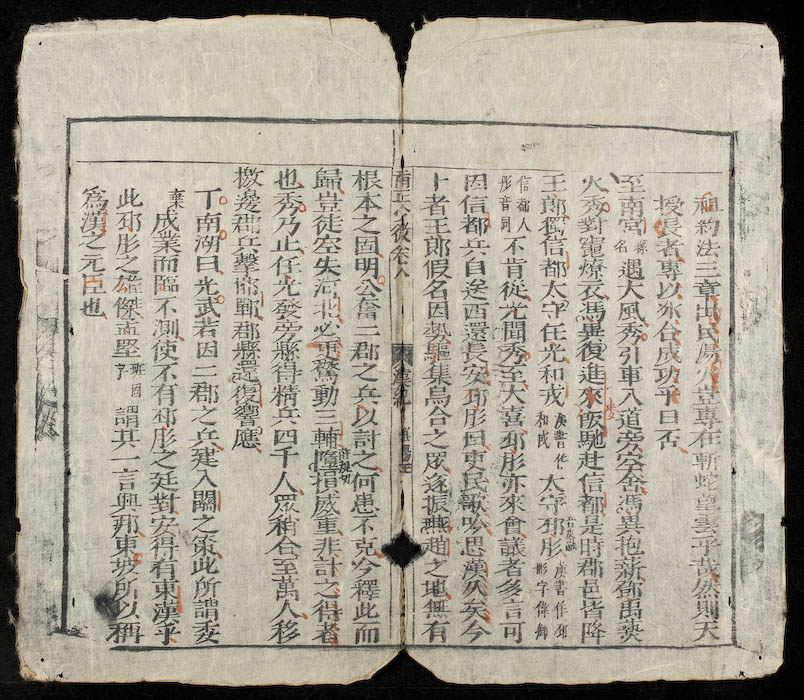 租約法三章民豈專在斬蛇望雲乎哉然則天
授長者專以氷合成功乎曰否
至南宮縣名遇大風秀引車入道旁空舍馮異抱薪鄧禹爇
火秀對竈燎衣馮異復進麥飯馳赴信都是時郡邑皆降
王郎獨信都太守任光和戎漢書作和成太守邳彤漢書作邳彤字偉卿
信都人彤音同不肯從光聞秀至大喜邳彤亦來會議者多言可
因信都兵自送西還長安邳彤曰吏民歌吟思漢久矣今
卜者王郎假名因勢驅集烏合之眾遂振燕趙之地無有
卷八
漢紀
根本之固明公奮二郡之兵以討之何患不克今釋此而
歸豈徒空失河北必更驚動三輔隳損威重非計之得者
也秀乃止任光發旁縣得精兵四千人眾稍合至萬人移
檄邊郡兵擊邯鄲郡縣還復響應
丁南湖曰光武若因二郡之兵建入關之策此所謂委
棄成業而臨不測使不有邳彤之廷對安得有東漢乎
此邳彤之雄傑孟堅班固字謂其一言興邦東坡所以稱
爲漢之元臣也